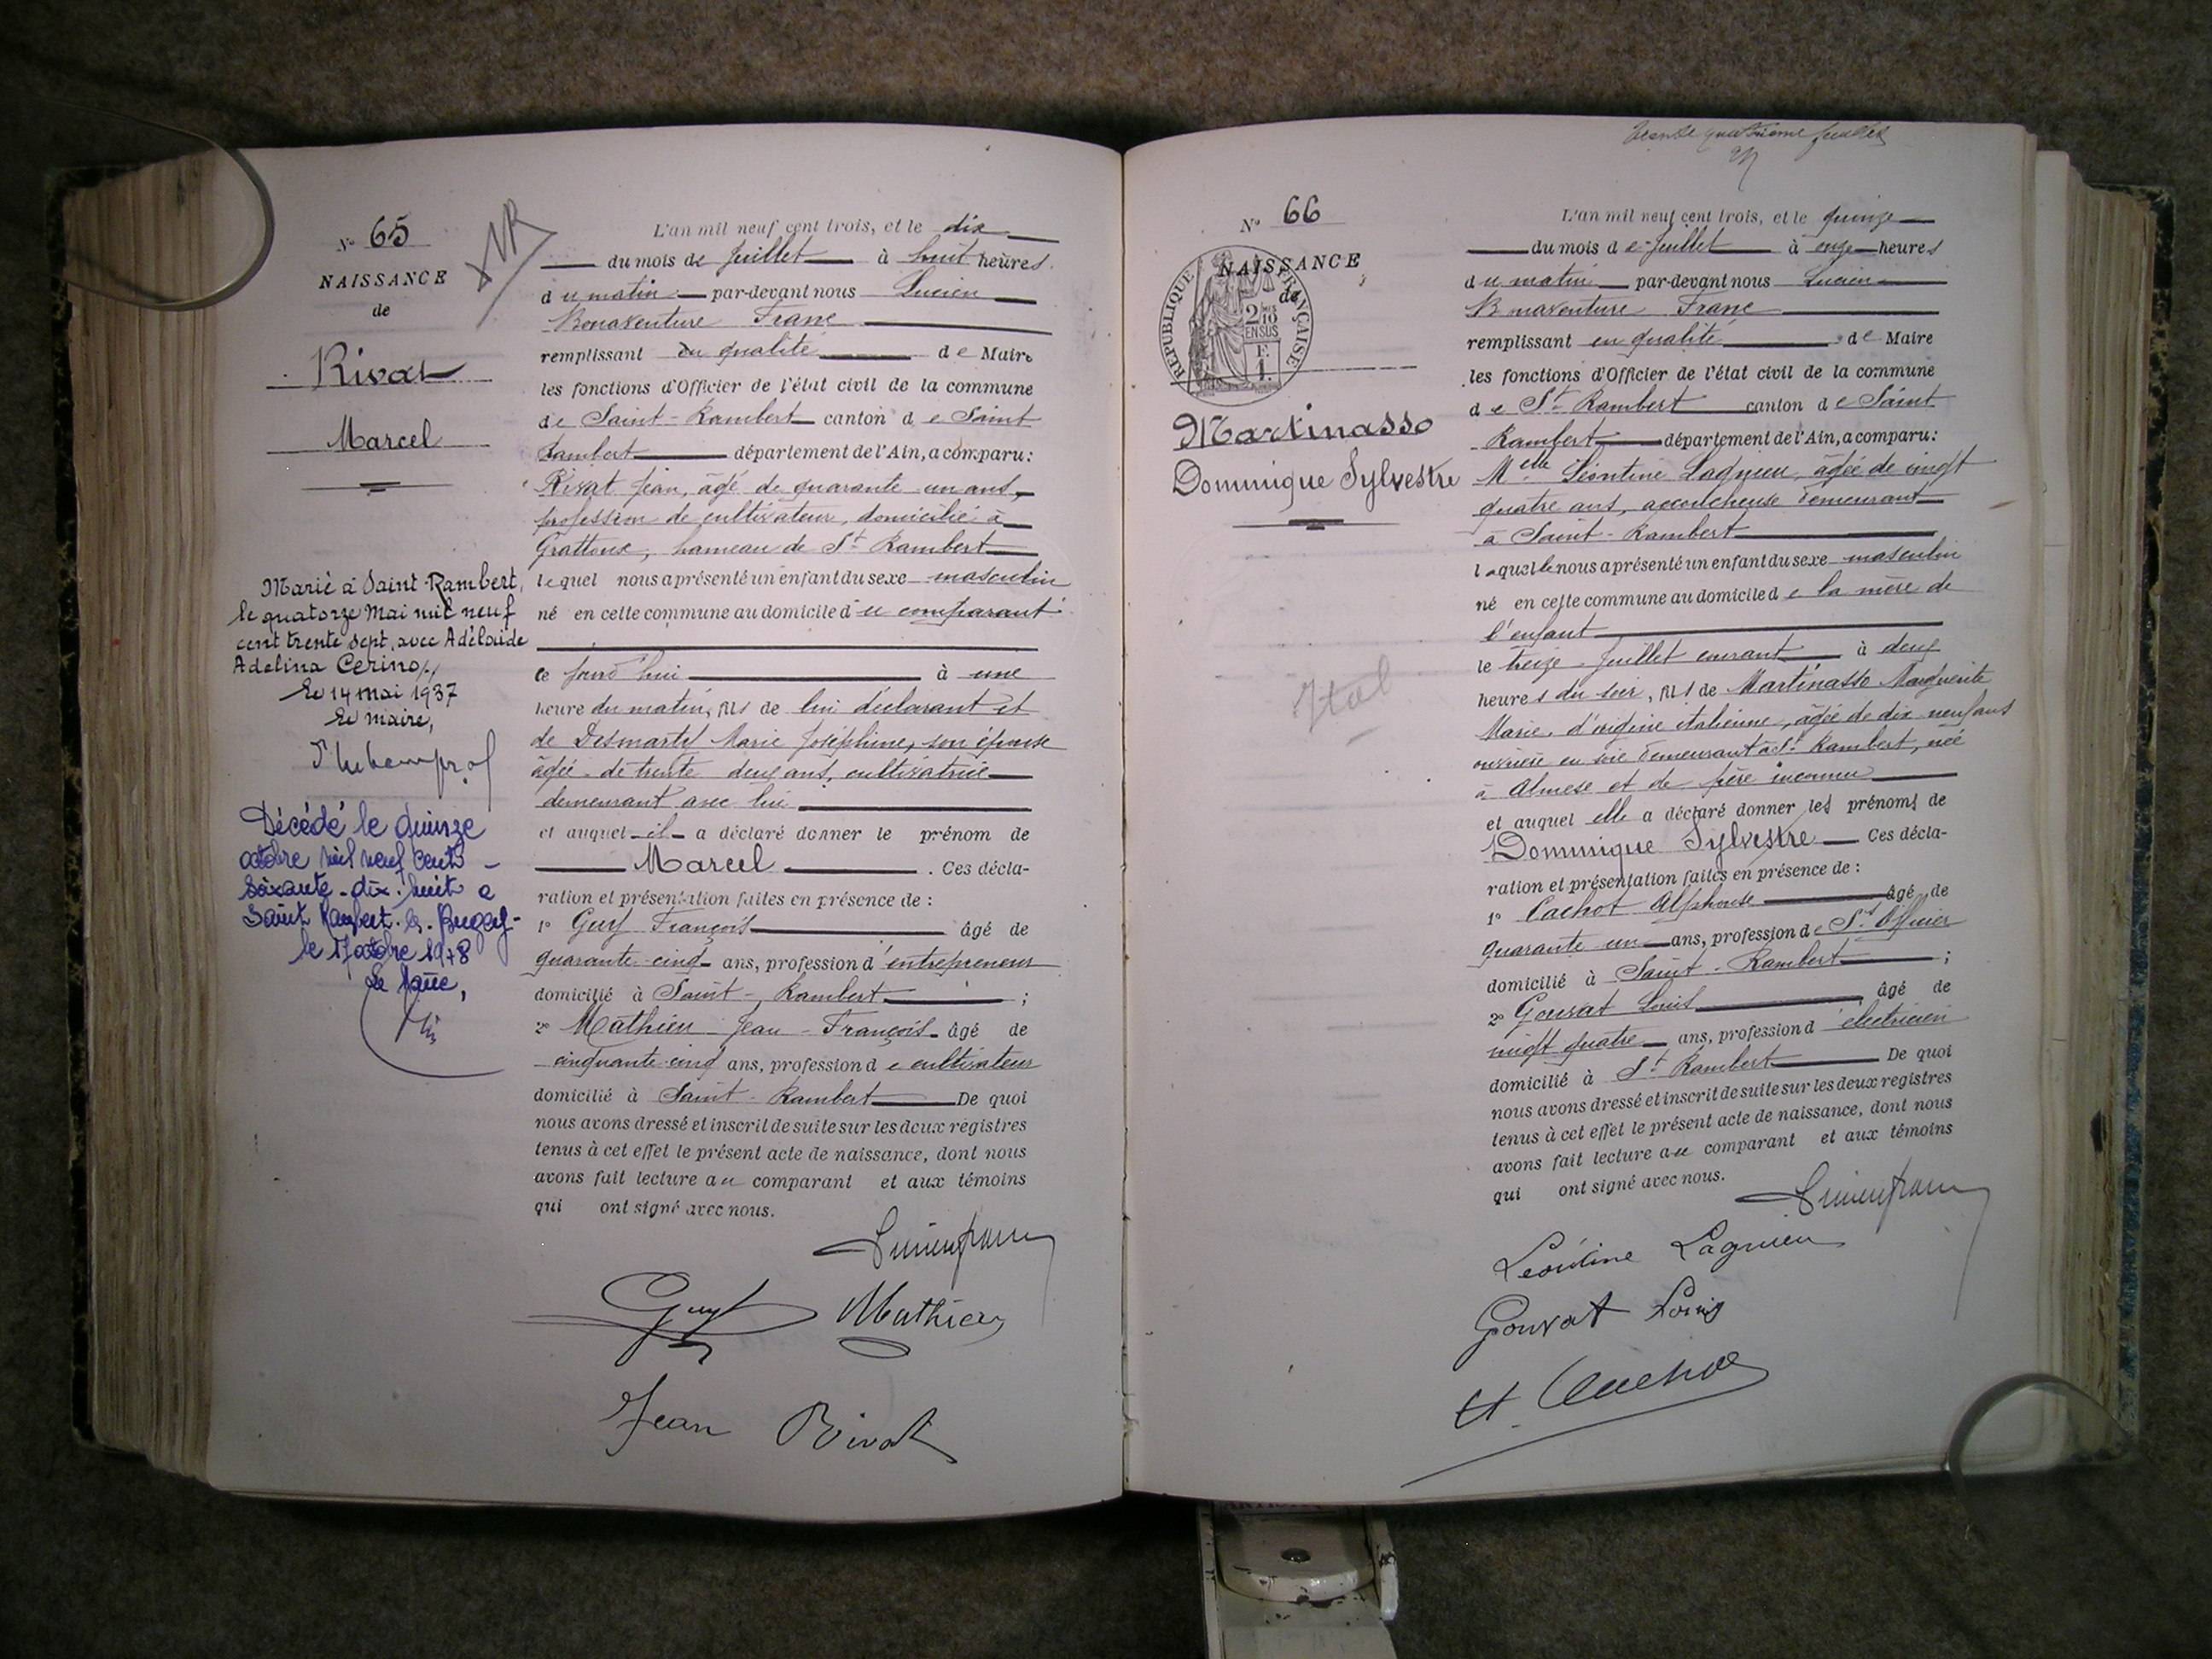 N° 65
NAISSANCE
de
Rivat
Marcel
Marié à Saint-Rambert,
le quatorze Mai mil neuf
cent trente sept, avec Adélaïde
Adelina Cerino
Le 14 mai 1937
Le maire,
Décédé le quinze
octobre mil neuf cent
soixante-dix-huit à
Saint Rambert-en-Bugey
le 17 octobre 1978
Le Maire,
L'an mil neuf cent trois, et le dix
du mois de Juillet à huit heures
du matin par-devant nous Lucien
Bonaventure Franc
remplissant en qualité de Maire
les fonctions d'Officier de l'état civil de la commune
de Saint-Rambert canton de Saint
Rambert département de l'Ain, a comparu:
Rivat Jean, âgé de quarante un ans,
profession de cultivateur, domicilié à
Grattoux, hameau de St Rambert
lequel nous a présenté un enfant du sexe masculin
né en cette commune au domicile du comparant
ce jourd'hui à une
heure du matin, fils de lui déclarant et
de Desmartel Marie Joséphine, son épouse
âgée de trente deux ans, cultivatrice
demeurant avec lui
et auquel il a déclaré donner le prénom de
Marcel. Ces décla-
ration et présentation faites en présence de :
1° Guy François âgé de
quarante-cinq ans, profession d'entrepreneur
domicilié à Saint-Rambert ;
2° Mathieu Jean-François âgé de
cinquante-cinq ans, profession de cultivateur
domicilié à Saint-Rambert De quoi
nous avons dressé et inscrit de suite sur les deux registres
tenus à cet effet le présent acte de naissance, dont nous
avons fait lecture au comparant et aux témoins
qui ont signé avec nous.
Lucien Franc
Guy Mathieu
Jean Rivat
trente quatrième feuillet
N° 66
NAISSANCE
de
REPUBLIQUE FRANÇAISE
2/10
EN SUS
Martinasso
Dominique Sylvestre
Ital
L'an mil neuf cent trois, et le quinze
du mois de Juillet à onze heures
du matin par-devant nous Lucien
Bonaventure Franc
remplissant en qualité de Maire
les fonctions d'Officier de l'état civil de la commune
de St Rambert canton de Saint
Rambert département de l'Ain, a comparu:
Melle Léontine Lagnieu, âgée de vingt
quatre ans, accoucheuse demeurant
à Saint-Rambert
laquelle nous a présenté un enfant du sexe masculin
né en cette commune au domicile de la mère de
l'enfant
le treize Juillet courant à deux
heures du soir, fils de Martinasso Marguerite
Marie, d'origine italienne, âgée de dix neuf ans
ouvrière en soie demeurant à St Rambert, née
à Almese et de père inconnu
et auquel elle a déclaré donner les prénoms de
Dominique Sylvestre Ces décla-
ration et présentation faites en présence de :
1° Cachot Alphonse âgé de
quarante un ans, profession de St Officier
domicilié à Saint-Rambert ;
2° Gouvat Louis âgé de
vingt quatre ans, profession d'électricien
domicilié à St Rambert De quoi
nous avons dressé et inscrit de suite sur les deux registres
tenus à cet effet le présent acte de naissance, dont nous
avons fait lecture au comparant et aux témoins
qui ont signé avec nous.
Lucien Franc
Léontine Lagnieu
Gouvat Louis
A. Cachot